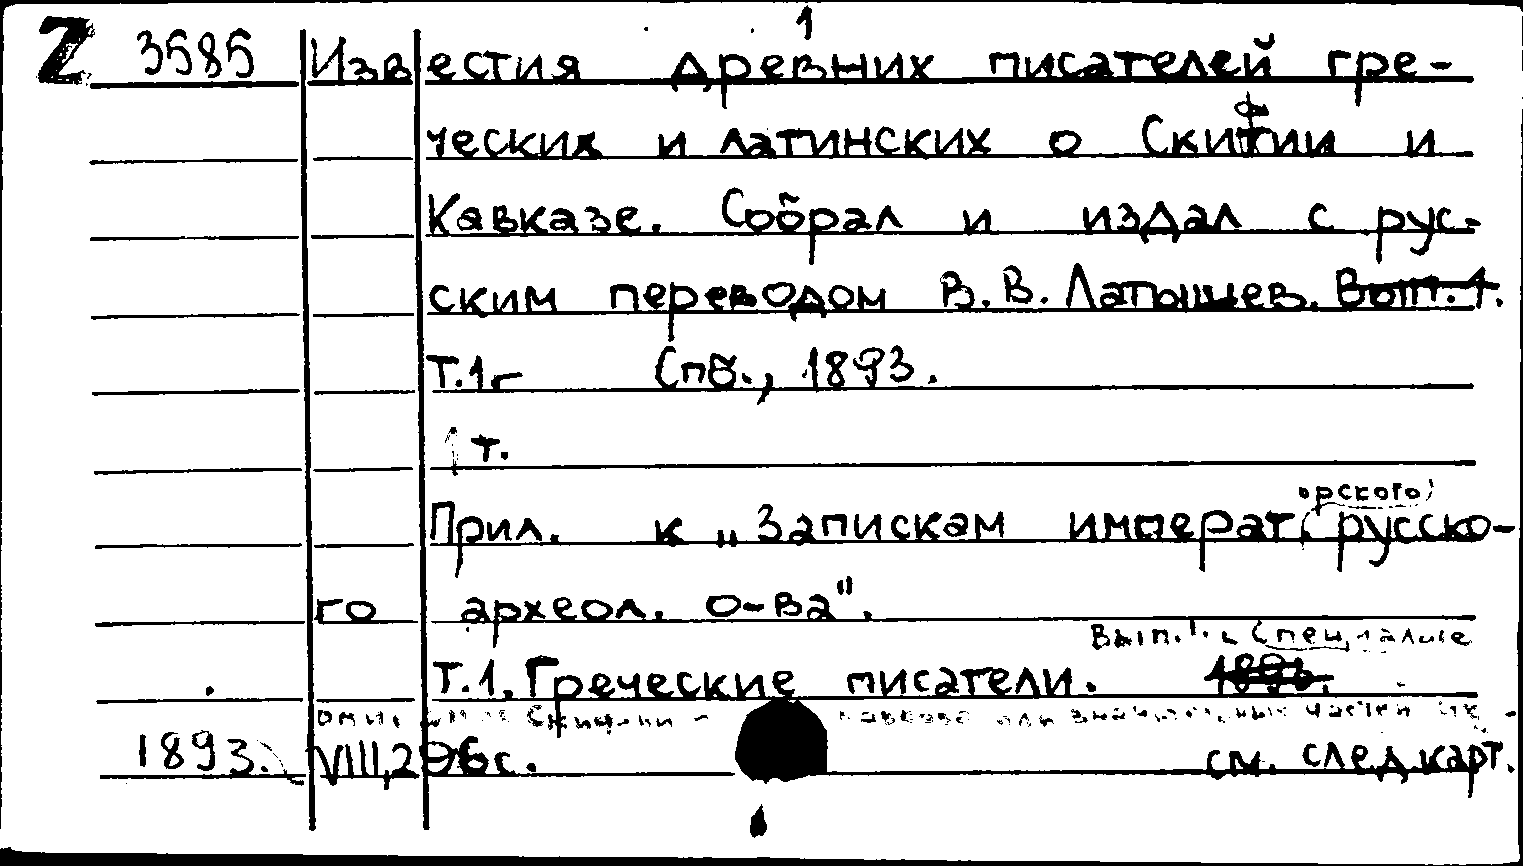 1
Z 3585 Известия древних писателей гре-
ческих и латинских о Скифии и
Кавказе. Собрал и издал с рус-
ским переводом В.В. Латышев. Вып. 1.
Т.1.- Спб., 1893.
↑ т.
орского)
Прил. к „Запискам императ. русско-
го археол. о-ва".
Вып. 1.
Т.1. Греческие писатели. 1893.
Кавказа или частей
1893. VIII, 296 с. см. след.карт.